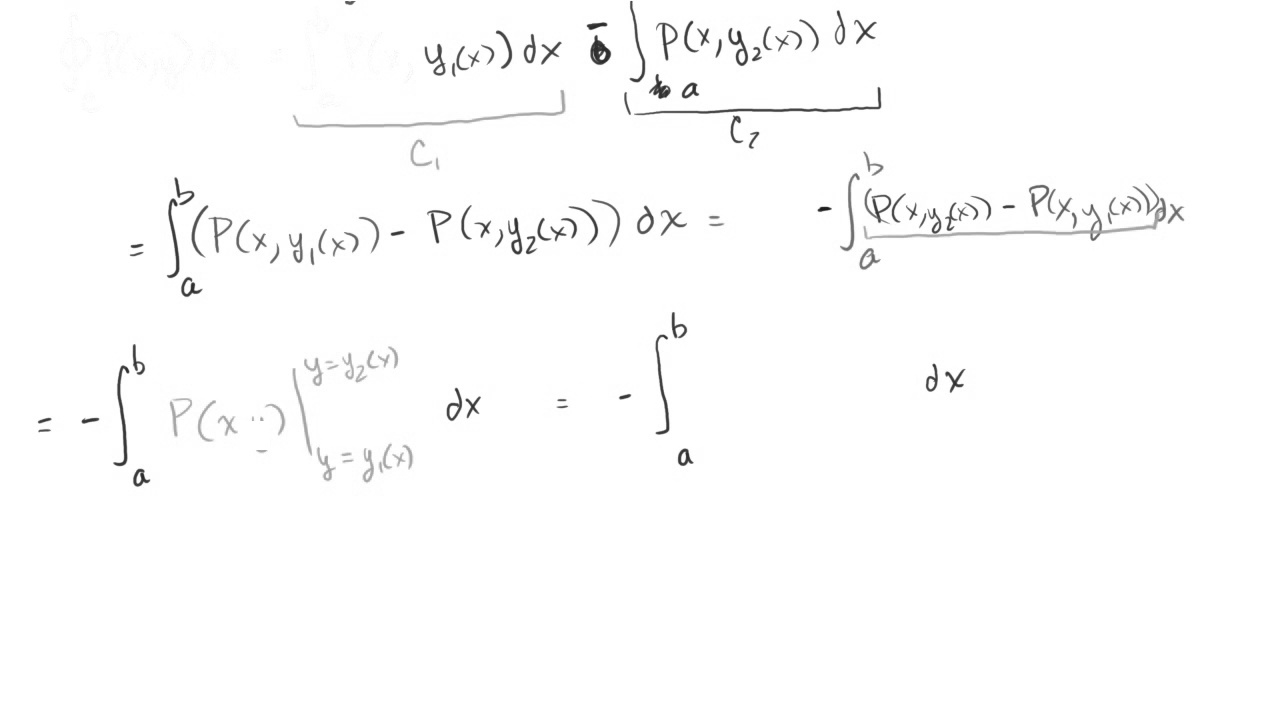 ∮_c P(x,y) dx = ∫_a^b P(x, y₁(x)) dx - ∫_a P(x, y₂(x)) dx
C₁ C₂
= ∫_a^b (P(x, y₁(x)) - P(x, y₂(x))) dx = - ∫_a^b (P(x, y₂(x)) - P(x, y₁(x))) dx
= - ∫_a^b P(x ..) |_{y = y₁(x)}^{y = y₂(x)} dx = - ∫_a^b dx